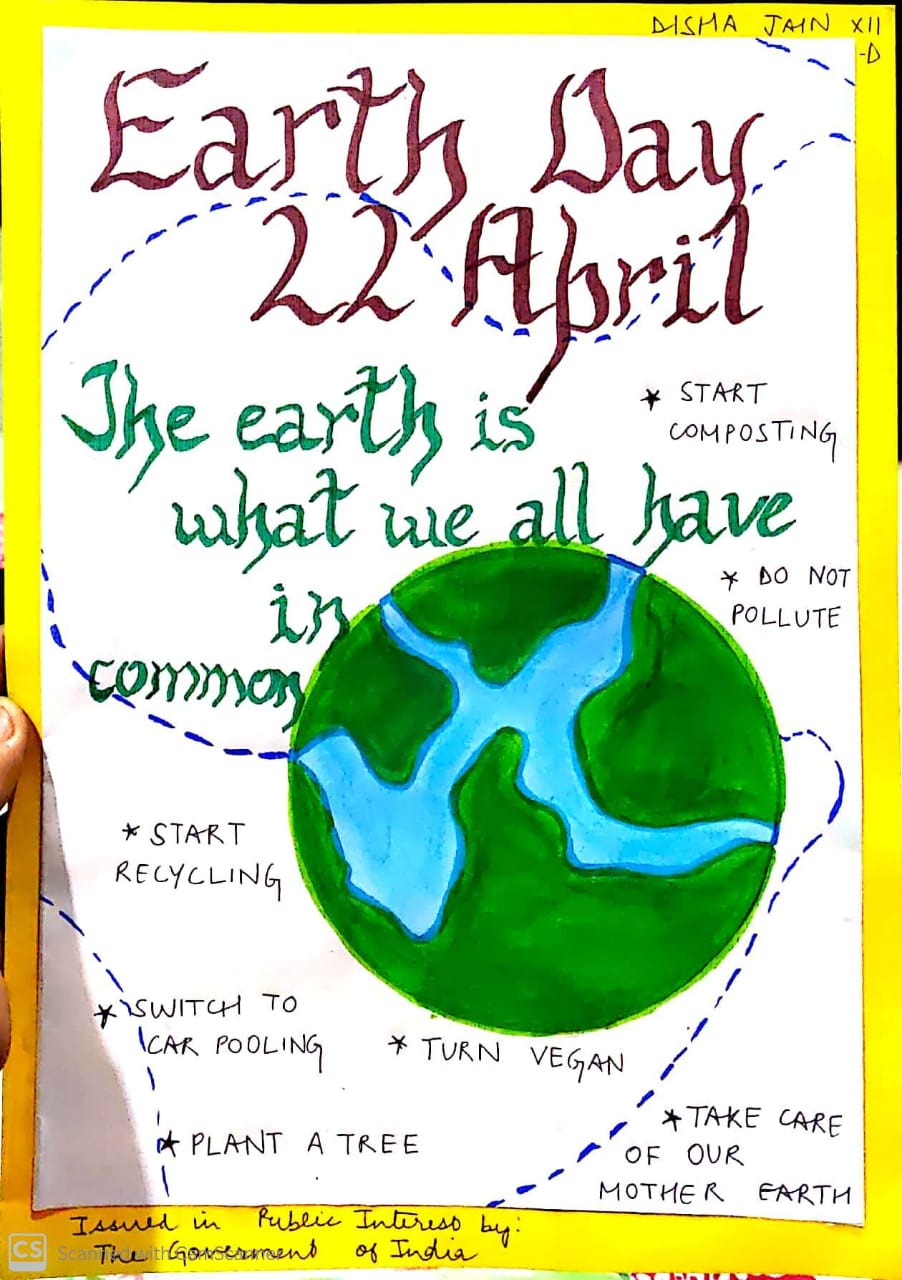 DISHA JAIN XII
-D
Earth Day
22 April
The earth is
what we all have
in
common
* START
COMPOSTING
* DO NOT
POLLUTE
* START
RECYCLING
* SWITCH TO
CAR POOLING
* TURN VEGAN
* PLANT A TREE
* TAKE CARE
OF OUR
MOTHER EARTH
Issued in Public Interest by:
The Government of India
CS Scanned with CamScanner